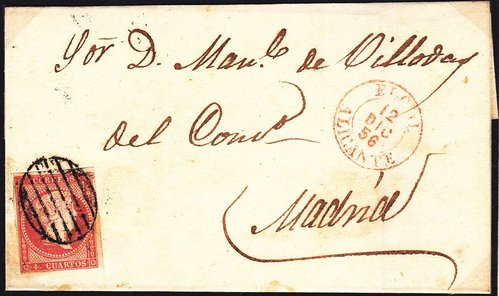 Sor. D. Manl. de Villodas
del Como.
Madrid
ELCHE
12
DIC
56
ALICANTE
CORREOS
4 CUARTOS